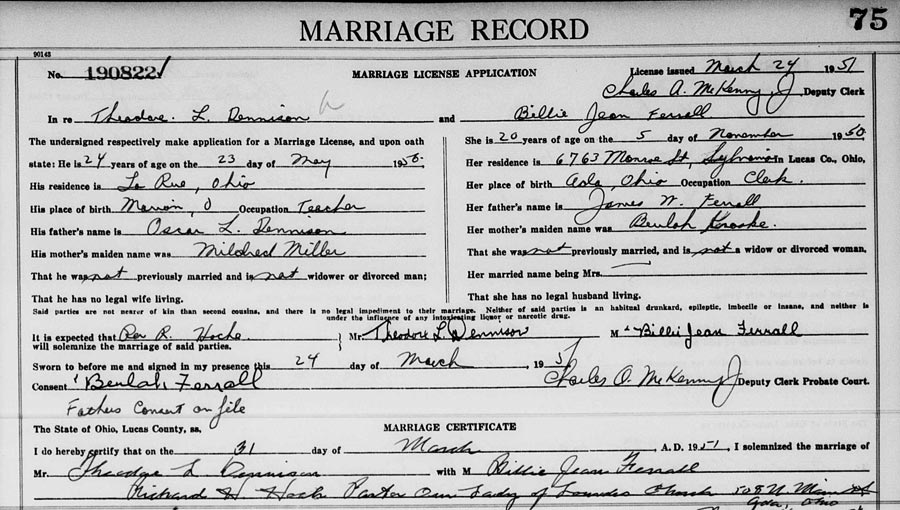 MARRIAGE RECORD
75
90143
No. 190822
MARRIAGE LICENSE APPLICATION
License issued March 24 1951
Charles A. McKenny, J, Deputy Clerk
In re Theodore L. Dennison and Billie Jean Ferrall
The undersigned respectively make application for a Marriage License, and upon oath
state: He is 24 years of age on the 23 day of May 1950.
His residence is La Rue, Ohio
His place of birth Marion, O Occupation Teacher
His father's name is Oscar L. Dennison
His mother's maiden name was Mildred Miller
That he was not previously married and is not widower or divorced man;
That he has no legal wife living.
She is 20 years of age on the 5 day of November 1950
Her residence is 6763 Monroe St, Sylvania In Lucas Co., Ohio,
Her place of birth Ada, Ohio Occupation Clerk.
Her father's name is James W. Ferrall
Her mother's maiden name was Beulah
That she was not previously married, and is not a widow or divorced woman,
Her married name being Mrs.
That she has no legal husband living.
Said parties are not nearer of kin than second cousins, and there is no legal impediment to their marriage. Neither of said parties is an habitual drunkard, epileptic, imbecile or insane, and neither is
under the influence of any intoxicating liquor or narcotic drug.
It is expected that Rev R. Hoche
will solemnize the marriage of said parties.
Mr. Theodore L. Dennison
M Billie Jean Ferrall
Sworn to before me and signed in my presence this 24 day of March, 1951
Consent Beulah Ferrall
Charles A. McKenny J Deputy Clerk Probate Court.
Fathers Consent on file
The State of Ohio, Lucas County, ss.
MARRIAGE CERTIFICATE
I do hereby certify that on the 31 day of March, A.D. 1951, I solemnized the marriage of
Mr. Theodore L Dennison with M Billie Jean Ferrall
Richard H Hoch Pastor Our Lady of Lourdes Church 508 N Main St
Ada, Ohio